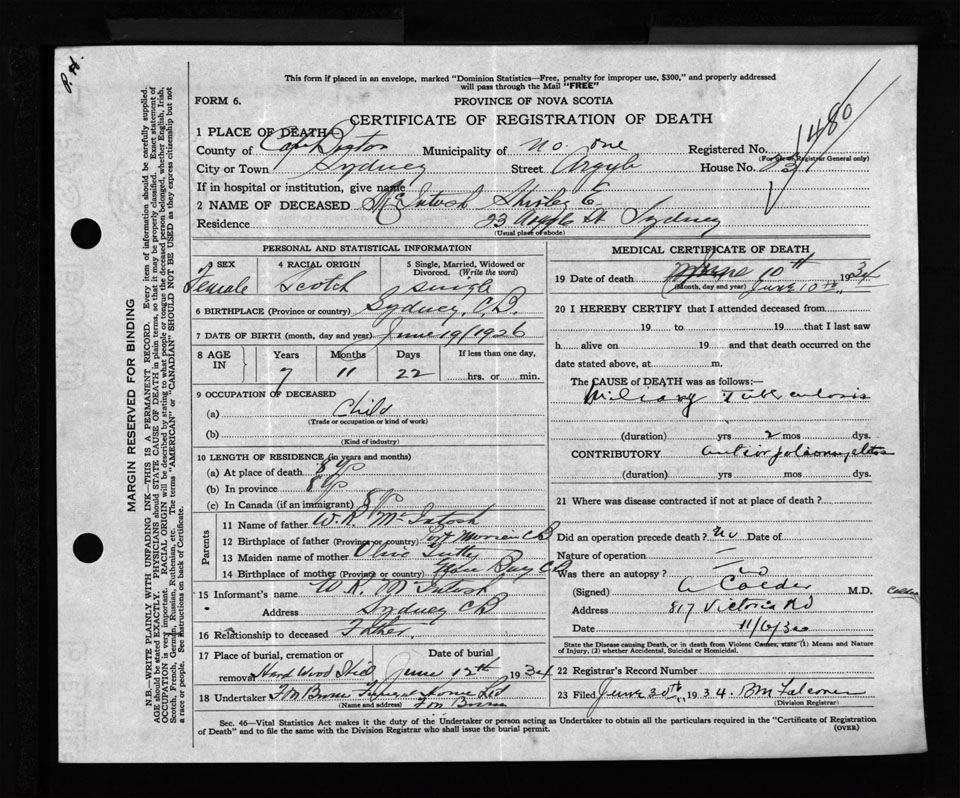 This form if placed in an envelope, marked "Dominion Statistics—Free, penalty for improper use, $300," and properly addressed
will pass through the Mail "FREE"
FORM 6.
PROVINCE OF NOVA SCOTIA
CERTIFICATE OF REGISTRATION OF DEATH
1480
1 PLACE OF DEATH
County of Cape Breton Municipality of No. one Registered No.
(For use of Registrar General only)
City or Town Sydney Street Argyle House No. 23
If in hospital or institution, give name
2 NAME OF DECEASED McIntosh Shirley E.
Residence 23 Argyle St. Sydney
(Usual place of abode)
PERSONAL AND STATISTICAL INFORMATION
3 SEX 4 RACIAL ORIGIN 5 Single, Married, Widowed or Divorced. (Write the word)
Female Scotch Single
6 BIRTHPLACE (Province or country) Sydney, C.B.
7 DATE OF BIRTH (month, day and year) June 19/1926
8 AGE IN Years Months Days If less than one day,
7 11 22 hrs. or min.
9 OCCUPATION OF DECEASED
(a) Child
(Trade or occupation or kind of work)
(b)
(Kind of industry)
10 LENGTH OF RESIDENCE (in years and months)
(a) At place of death 8 yrs
(b) In province 8 yrs
(c) In Canada (if an immigrant) 8 yrs
Parents
11 Name of father W. R. McIntosh
12 Birthplace of father (Province or country) Port Morien CB
13 Maiden name of mother Olive
14 Birthplace of mother (Province or country) Glace Bay CB
15 Informant's name W. R. McIntosh
Address Sydney CB
16 Relationship to deceased Father.
17 Place of burial, cremation or removal Date of burial
Hardwood Hill June 12th 1934
18 Undertaker Funeral Home Ltd
(Name and address)
MEDICAL CERTIFICATE OF DEATH
19 Date of death June 10th 1934
(Month, day and year) June 10th.
20 I HEREBY CERTIFY that I attended deceased from
19 to 19 that I last saw
h alive on 19 and that death occurred on the
date stated above, at m.
The CAUSE of DEATH was as follows:—
Miliary Tuberculosis
(duration) yrs 2 mos dys.
CONTRIBUTORY
(duration) yrs mos dys.
21 Where was disease contracted if not at place of death?
Did an operation precede death? no Date of
Nature of operation —
Was there an autopsy? no
(Signed) Calder M.D. Calder
Address 817 Victoria Rd
Date 11/6/34
State the Disease causing Death, or in death from Violent Causes, state (1) Means and Nature of Injury, (2) whether Accidental, Suicidal or Homicidal.
22 Registrar's Record Number
23 Filed June 20th 1934. BM Falconer
(Division Registrar)
Sec. 46—Vital Statistics Act makes it the duty of the Undertaker or person acting as Undertaker to obtain all the particulars required in the "Certificate of Registration
of Death" and to file the same with the Division Registrar who shall issue the burial permit.
(OVER)
MARGIN RESERVED FOR BINDING
N.B.—WRITE PLAINLY WITH UNFADING INK—THIS IS A PERMANENT RECORD. Every item of information should be carefully supplied.
AGE should be stated EXACTLY. PHYSICIANS should STATE CAUSE OF DEATH in plain terms, so that it may be properly classified. Exact statement of
OCCUPATION is very important. RACIAL ORIGIN will be described by stating to what people or tongue the deceased person belonged, whether English, Irish,
Scotch, French, German, Russian, Ruthenian, etc. The terms "AMERICAN" or "CANADIAN" SHOULD NOT BE USED as they express citizenship but not
a race or people. See instructions on back of Certificate.